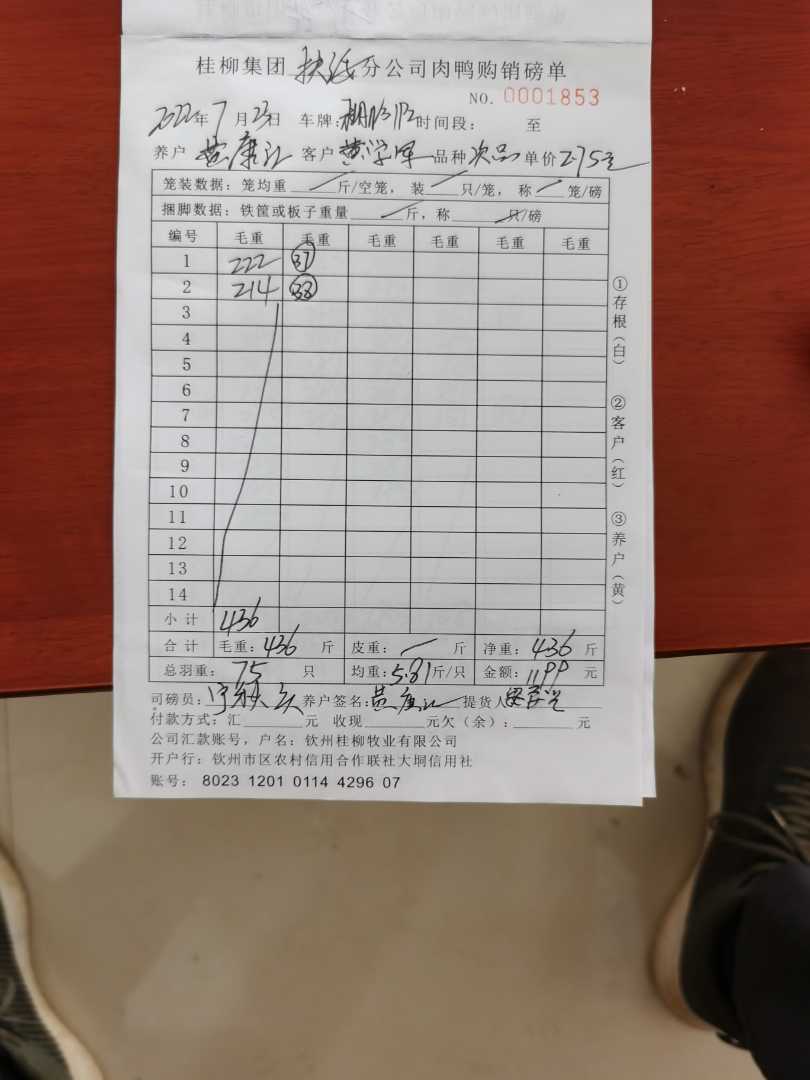 桂柳集团 扶绥 分公司肉鸭购销磅单
NO. 0001853
2022年7月23日 车牌: 时间段: 至
养户 黄康 客户 黄学军 品种 次品 单价 2.75元
笼装数据: 笼均重 斤/空笼, 装 只/笼, 称 笼/磅
捆脚数据: 铁筐或板子重量 斤, 称 只/磅
编号 毛重 毛重 毛重 毛重 毛重 毛重
1 222 37
2 214 38
3
4
5
6
7
8
9
10
11
12
13
14
小计 436
合计 毛重: 436 斤 皮重: 斤 净重: 436 斤
总羽重: 75 只 均重: 5.81 斤/只 金额: 1199 元
司磅员: 养户签名: 黄康 提货人
付款方式: 汇 元 收现 元欠(余): 元
公司汇款账号, 户名: 钦州桂柳牧业有限公司
开户行: 钦州市区农村信用合作联社大垌信用社
账号: 8023 1201 0114 4296 07
①存根(白)
②客户(红)
③养户(黄)